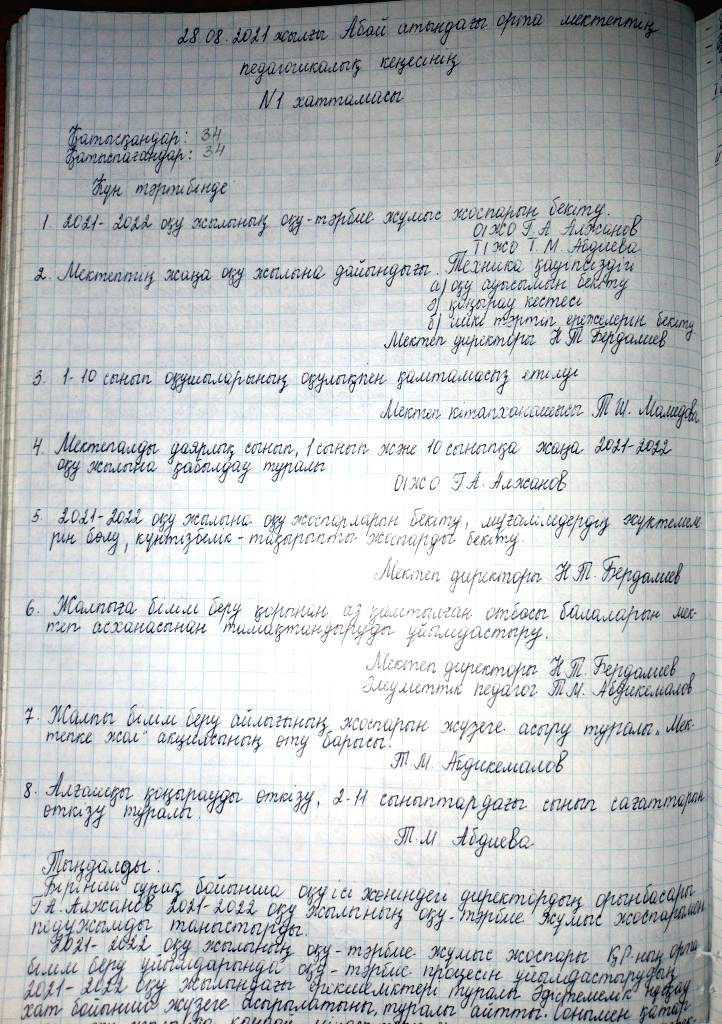 28.08.2021 жылғы Абай атындағы орта мектептің
педагогикалық кеңесінің
N1 хаттамасы
Қатысқандар: 34
Қатыспағандар: 34
Күн тәртібінде
1. 2021-2022 оқу жылының оқу-тәрбие жұмыс жоспарын бекіту.
ОІЖО Г.А. Алжанов
ТІЖО Т.М. Абдиева
2. Мектептің жаңа оқу жылына дайындығы. Техника қауіпсіздігі
а) оқу ауысымын бекіту
ә) қоңырау кестесі
б) ішкі тәртіп ережелерін бекіту
Мектеп директоры Н.Т. Бердалиев
3. 1-10 сынып оқушыларының оқулықпен қамтамасыз етілуі
Мектеп кітапханашысы Т.Ш. Мамедова
4. Мектепалды даярлық сынып, 1 сынып және 10 сыныпқа жаңа 2021-2022
оқу жылына қабылдау туралы
ОІЖО Г.А. Алжанов
5. 2021-2022 оқу жылына оқу жоспарларын бекіту, мұғалімдердің жүктемеле
рін бөлу, күнтізбелік-тақырыптық жоспарды бекіту.
Мектеп директоры Н.Т. Бердалиев
6. Жалпыға білім беру қорынан аз қамтылған отбасы балаларын мек-
теп асханасынан тамақтандыруды ұйымдастыру.
Мектеп директоры Н.Т. Бердалиев
Әлеуметтік педагог Т.М. Абдикемалов
7. Жалпы білім беру айлығының жоспарын жүзеге асыру туралы „Мек-
тепке жол" акциясының өту барысы.
Т.М. Абдикемалов
8. Алғашқы қоңырауды өткізу, 2-11 сыныптардағы сынып сағаттарын
өткізу туралы.
Т.М. Абдиева
Тыңдалды:
Бірінші сұрақ бойынша оқу ісі жөніндегі директордың орынбасары
Г.А. Алжанов 2021-2022 оқу жылының оқу-тәрбие жұмыс жоспарымен
педұжымды таныстырды.
2021-2022 оқу жылының оқу-тәрбие жұмыс жоспары ҚР-ның орта
білім беру ұйымдарында оқу-тәрбие процесін ұйымдастырудың
2021-2022 оқу жылындағы ерекшеліктері туралы Әдістемелік нұсқау
хат бойынша жүзеге асырылатыны туралы айтты. Сонымен қатар